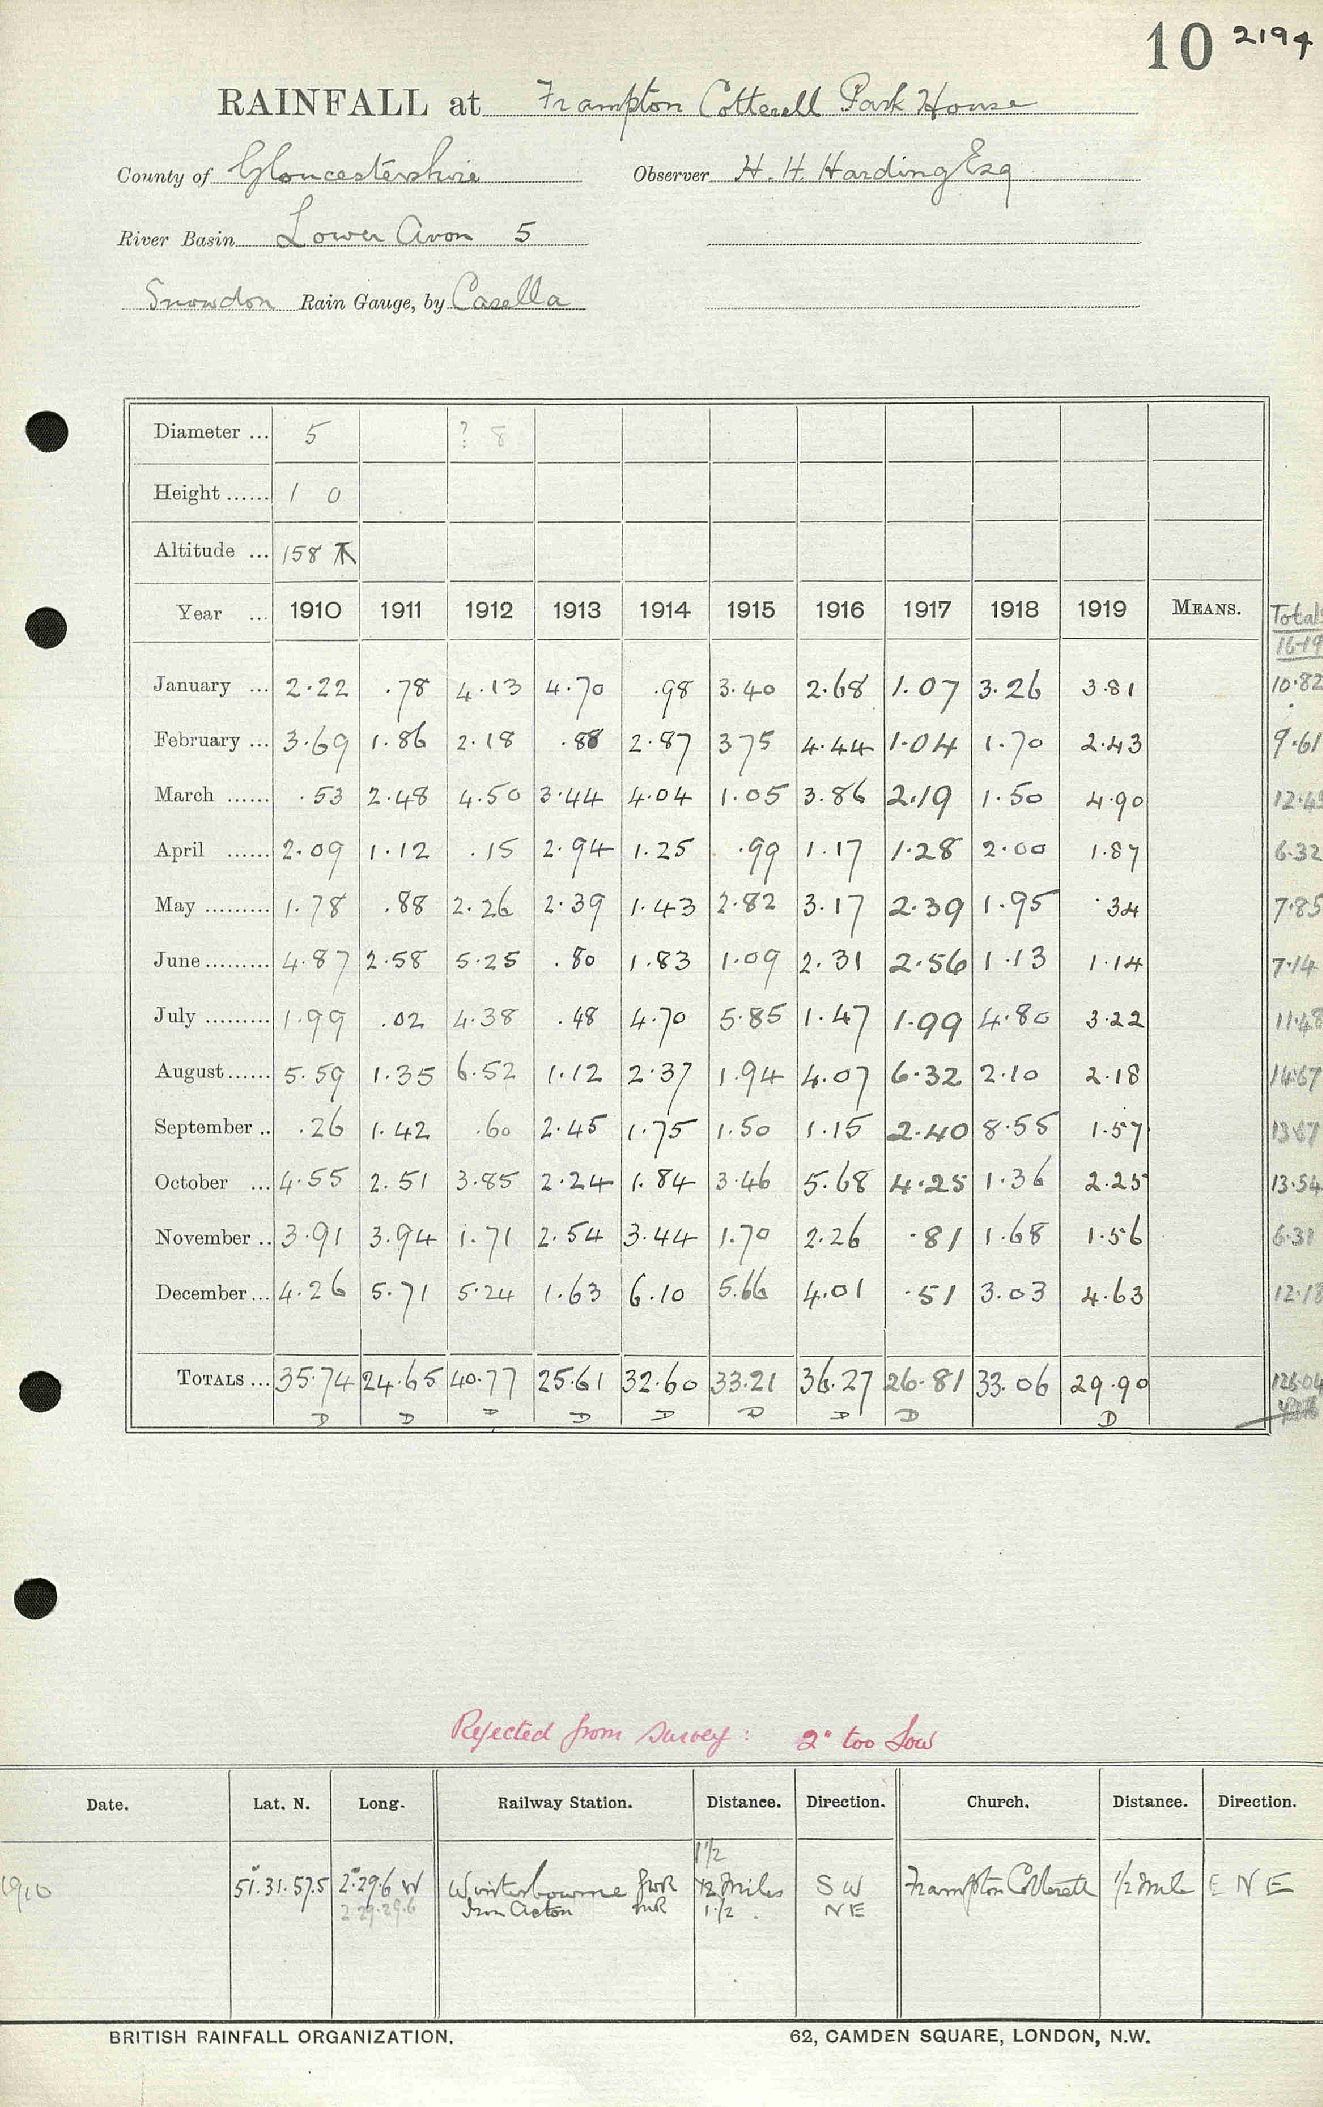 10 2194
RAINFALL at Frampton Cotterell Park House
County of Gloucestershire Observer H. H. Harding Esq
River Basin Lower Avon 5
Snowdon Rain Gauge, by Casella
Diameter ... 5 ? 8
Height ...... 1 0
Altitude ... 158
Year ... 1910 1911 1912 1913 1914 1915 1916 1917 1918 1919 MEANS. Total
16-19
January ... 2.22 .78 4.13 4.70 .98 3.40 2.68 1.07 3.26 3.81 10.82
February ... 3.69 1.86 2.18 .88 2.87 3 75 4.44 1.04 1.70 2.43 9.61
March ...... .53 2.48 4.50 3.44 4.04 1.05 3.86 2.19 1.50 4.90 12.45
April ...... 2.09 1.12 .15 2.94 1.25 .99 1.17 1.28 2.00 1.87 6.32
May ......... 1.78 .88 2.26 2.39 1.43 2.82 3.17 2.39 1.95 .34 7.85
June ......... 4.87 2.58 5.25 .80 1.83 1.09 2.31 2.56 1.13 1.14 7.14
July ......... 1.99 .02 4.38 .48 4.70 5.85 1.47 1.99 4.80 3.22 11.48
August ...... 5.59 1.35 6.52 1.12 2.37 1.94 4.07 6.32 2.10 2.18 14.67
September .. .26 1.42 .60 2.45 1.75 1.50 1.15 2.40 8.55 1.57 13.67
October ... 4.55 2.51 3.85 2.24 1.84 3.46 5.68 4.25 1.36 2.25 13.54
November .. 3.91 3.94 1.71 2.54 3.44 1.70 2.26 .81 1.68 1.56 6.31
December ... 4.26 5.71 5.24 1.63 6.10 5.66 4.01 .51 3.03 4.63 12.18
TOTALS ... 35.74 24.65 40.77 25.61 32.60 33.21 36.27 26.81 33.06 29.90 126.04
D D D D D D D D D
Rejected from Survey: 2" too Low
Date. Lat. N. Long. Railway Station. Distance. Direction. Church. Distance. Direction.
1 1/2
1910 51.31.57.5 2.29.6 W Winterbourne GWR 1/2 Miles S W Frampton Cotterell 1/2 Mile E N E
2.29.29.6 Iron Acton MR 1 1/2 . N E
BRITISH RAINFALL ORGANIZATION. 62, CAMDEN SQUARE, LONDON, N.W.